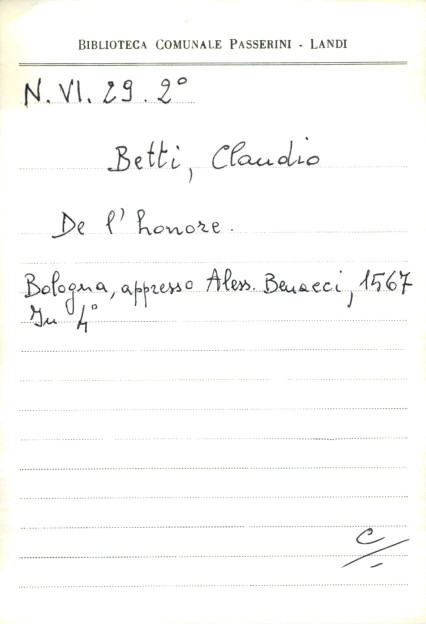 BIBLIOTECA COMUNALE PASSERINI - LANDI
N. VI. 29. 2°
Betti, Claudio
De l'honore.
Bologna, appresso Aless. Benacci, 1567
In 4°
C